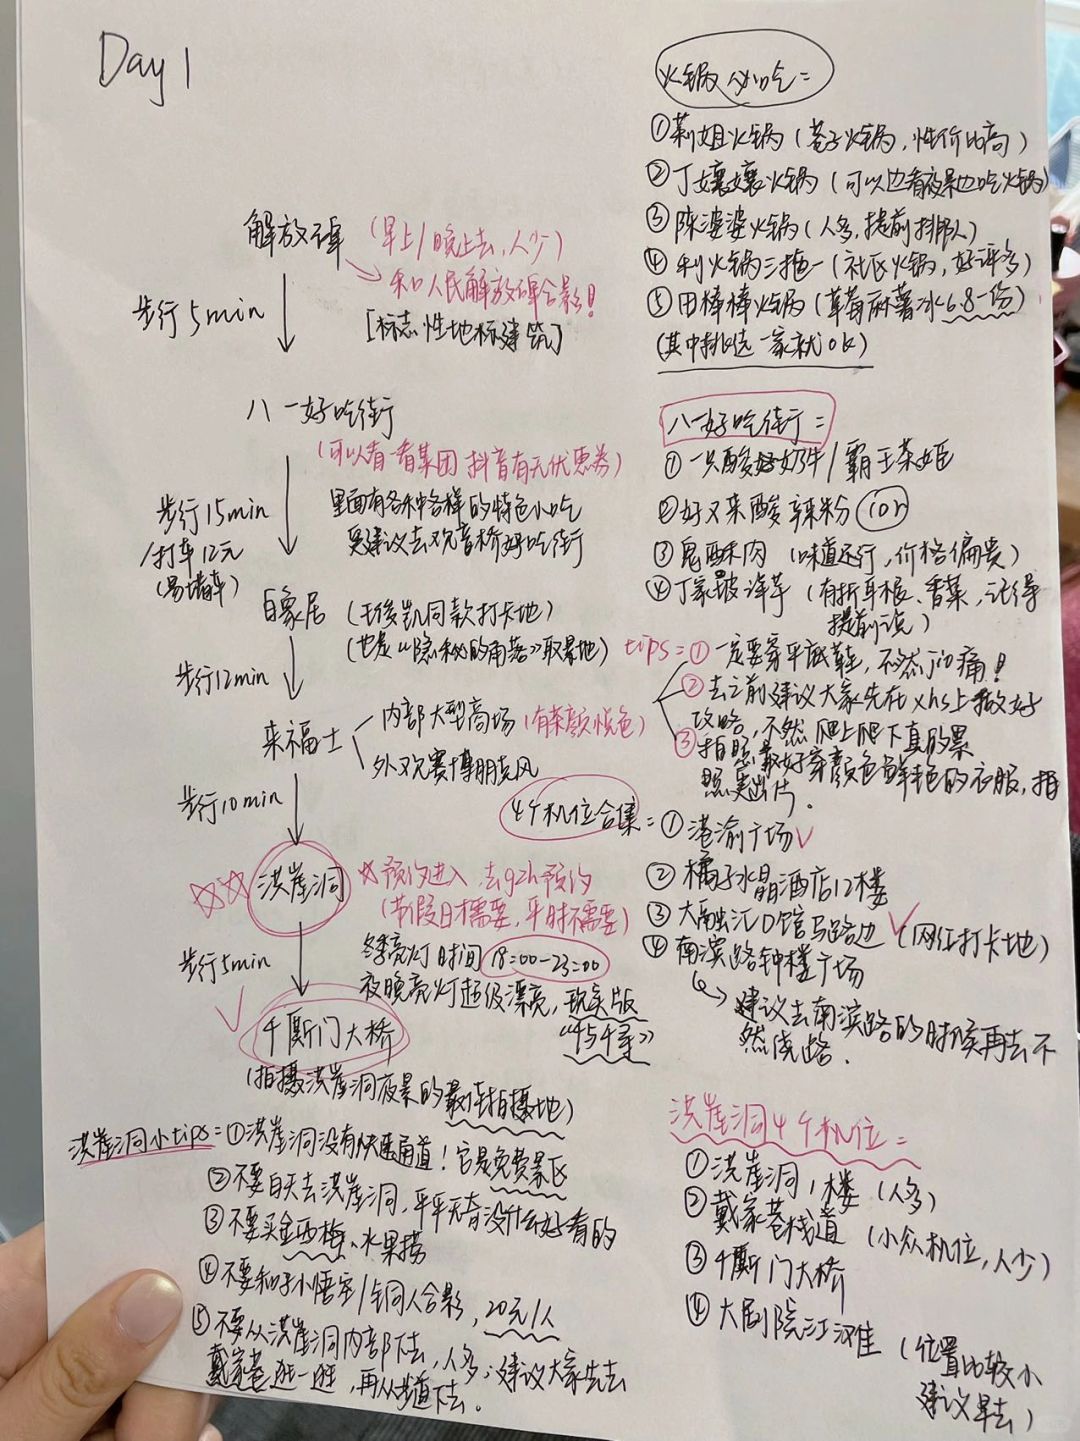 Day 1
解放碑 (早上/晚上去,人少)
和人民解放碑合影!
[标志性地标建筑]
步行5min
八一好吃街
(可以看一看美团 抖音有无优惠券)
里面有各种各样的特色小吃
更建议去观音桥好吃街
步行15min
/打车12元
(易堵车)
白象居 (王俊凯同款打卡地)
(也是《隐秘的角落》取景地)
步行12min
来福士
内部大型商场 (有茶颜悦色)
外观赛博朋克风
步行10min
洪崖洞 预约进入 去gzh预约
(节假日才需要,平时不需要)
冬季亮灯时间 18:00-23:00
夜晚亮灯超级漂亮,现实版
《千与千寻》
步行5min
千厮门大桥
(拍摄洪崖洞夜景的最佳拍摄地)
洪崖洞小tips=①洪崖洞没有快速通道!它是免费景区
②不要白天去洪崖洞,平平无奇没什么好看的
③不要买金西梅、水果捞
④不要和孙小悟空/铜人合影,20元/人
⑤不要从洪崖洞内部下去,人多;建议大家先去
戴家巷逛一逛,再从步道下去.
火锅必吃=
①莉姐火锅(巷子火锅,性价比高)
②丁孃孃火锅(可以边看夜景边吃火锅)
③陈婆婆火锅(人多,提前排队)
④利火锅三拖一(社区火锅,好评多)
⑤田棒棒火锅(草莓麻薯冰6.8一份)
(其中挑选一家就OK)
八一好吃街=
①一只酸奶牛/霸王茶姬
②好又来酸辣粉 10r
③鬼酥肉 (味道还行,价格偏贵)
④丁家最洋芋 (有折耳根、香菜,记得
提前说)
tips=①一定要穿平底鞋,不然jio痛!
②去之前建议大家先在xhs上做好
攻略,不然爬上爬下真的累
③拍照最好穿颜色鲜艳的衣服,拍
照更出片.
4个机位合集=①港渝广场
②橘子水晶酒店12楼
③大融汇D馆马路边 (网红打卡地)
④南滨路钟楼广场
建议去南滨路的时候再去不
然绕路.
洪崖洞4个机位=
①洪崖洞1楼 (人多)
②戴家巷栈道 (小众机位,人少)
③千厮门大桥
④大剧院江滩 (位置比较小
建议早去)